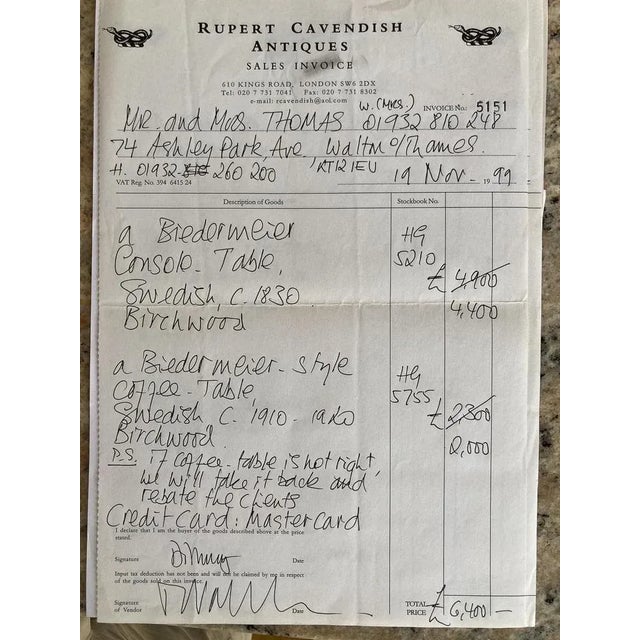 RUPERT CAVENDISH
ANTIQUES
SALES INVOICE
610 KINGS ROAD, LONDON SW6 2DX
Tel: 020 7 731 7041 Fax: 020 7 731 8302
e-mail: rcavendish@aol.com
W. (MRS.) INVOICE No: 5151
MR. and Mrs. THOMAS 01932 810 248
74 Ashley Park Ave, Walton o/Thames.
H. 01932 260 200 KT12 1EU 19 Nov. 1999
VAT Reg. No. 394 6415 24
Description of Goods Stockbook No.
a Biedermeier HG
Console-Table, 5210
£ 4,900
Swedish, C. 1830 4,400
Birchwood
a Biedermeier-style HG
Coffee-Table, 5755
Swedish C. 1910-1920 £ 2,300
Birchwood 2,000
P.S. if coffee-table is not right,
we will take it back and
rebate the clients
Credit Card: Mastercard
I declare that I am the buyer of the goods described above at the price
stated.
Signature Date
Input tax deduction has not been and will not be claimed by me in respect
of the goods sold on this invoice.
Signature
of Vendor Date
TOTAL
PRICE £ 6,400 -